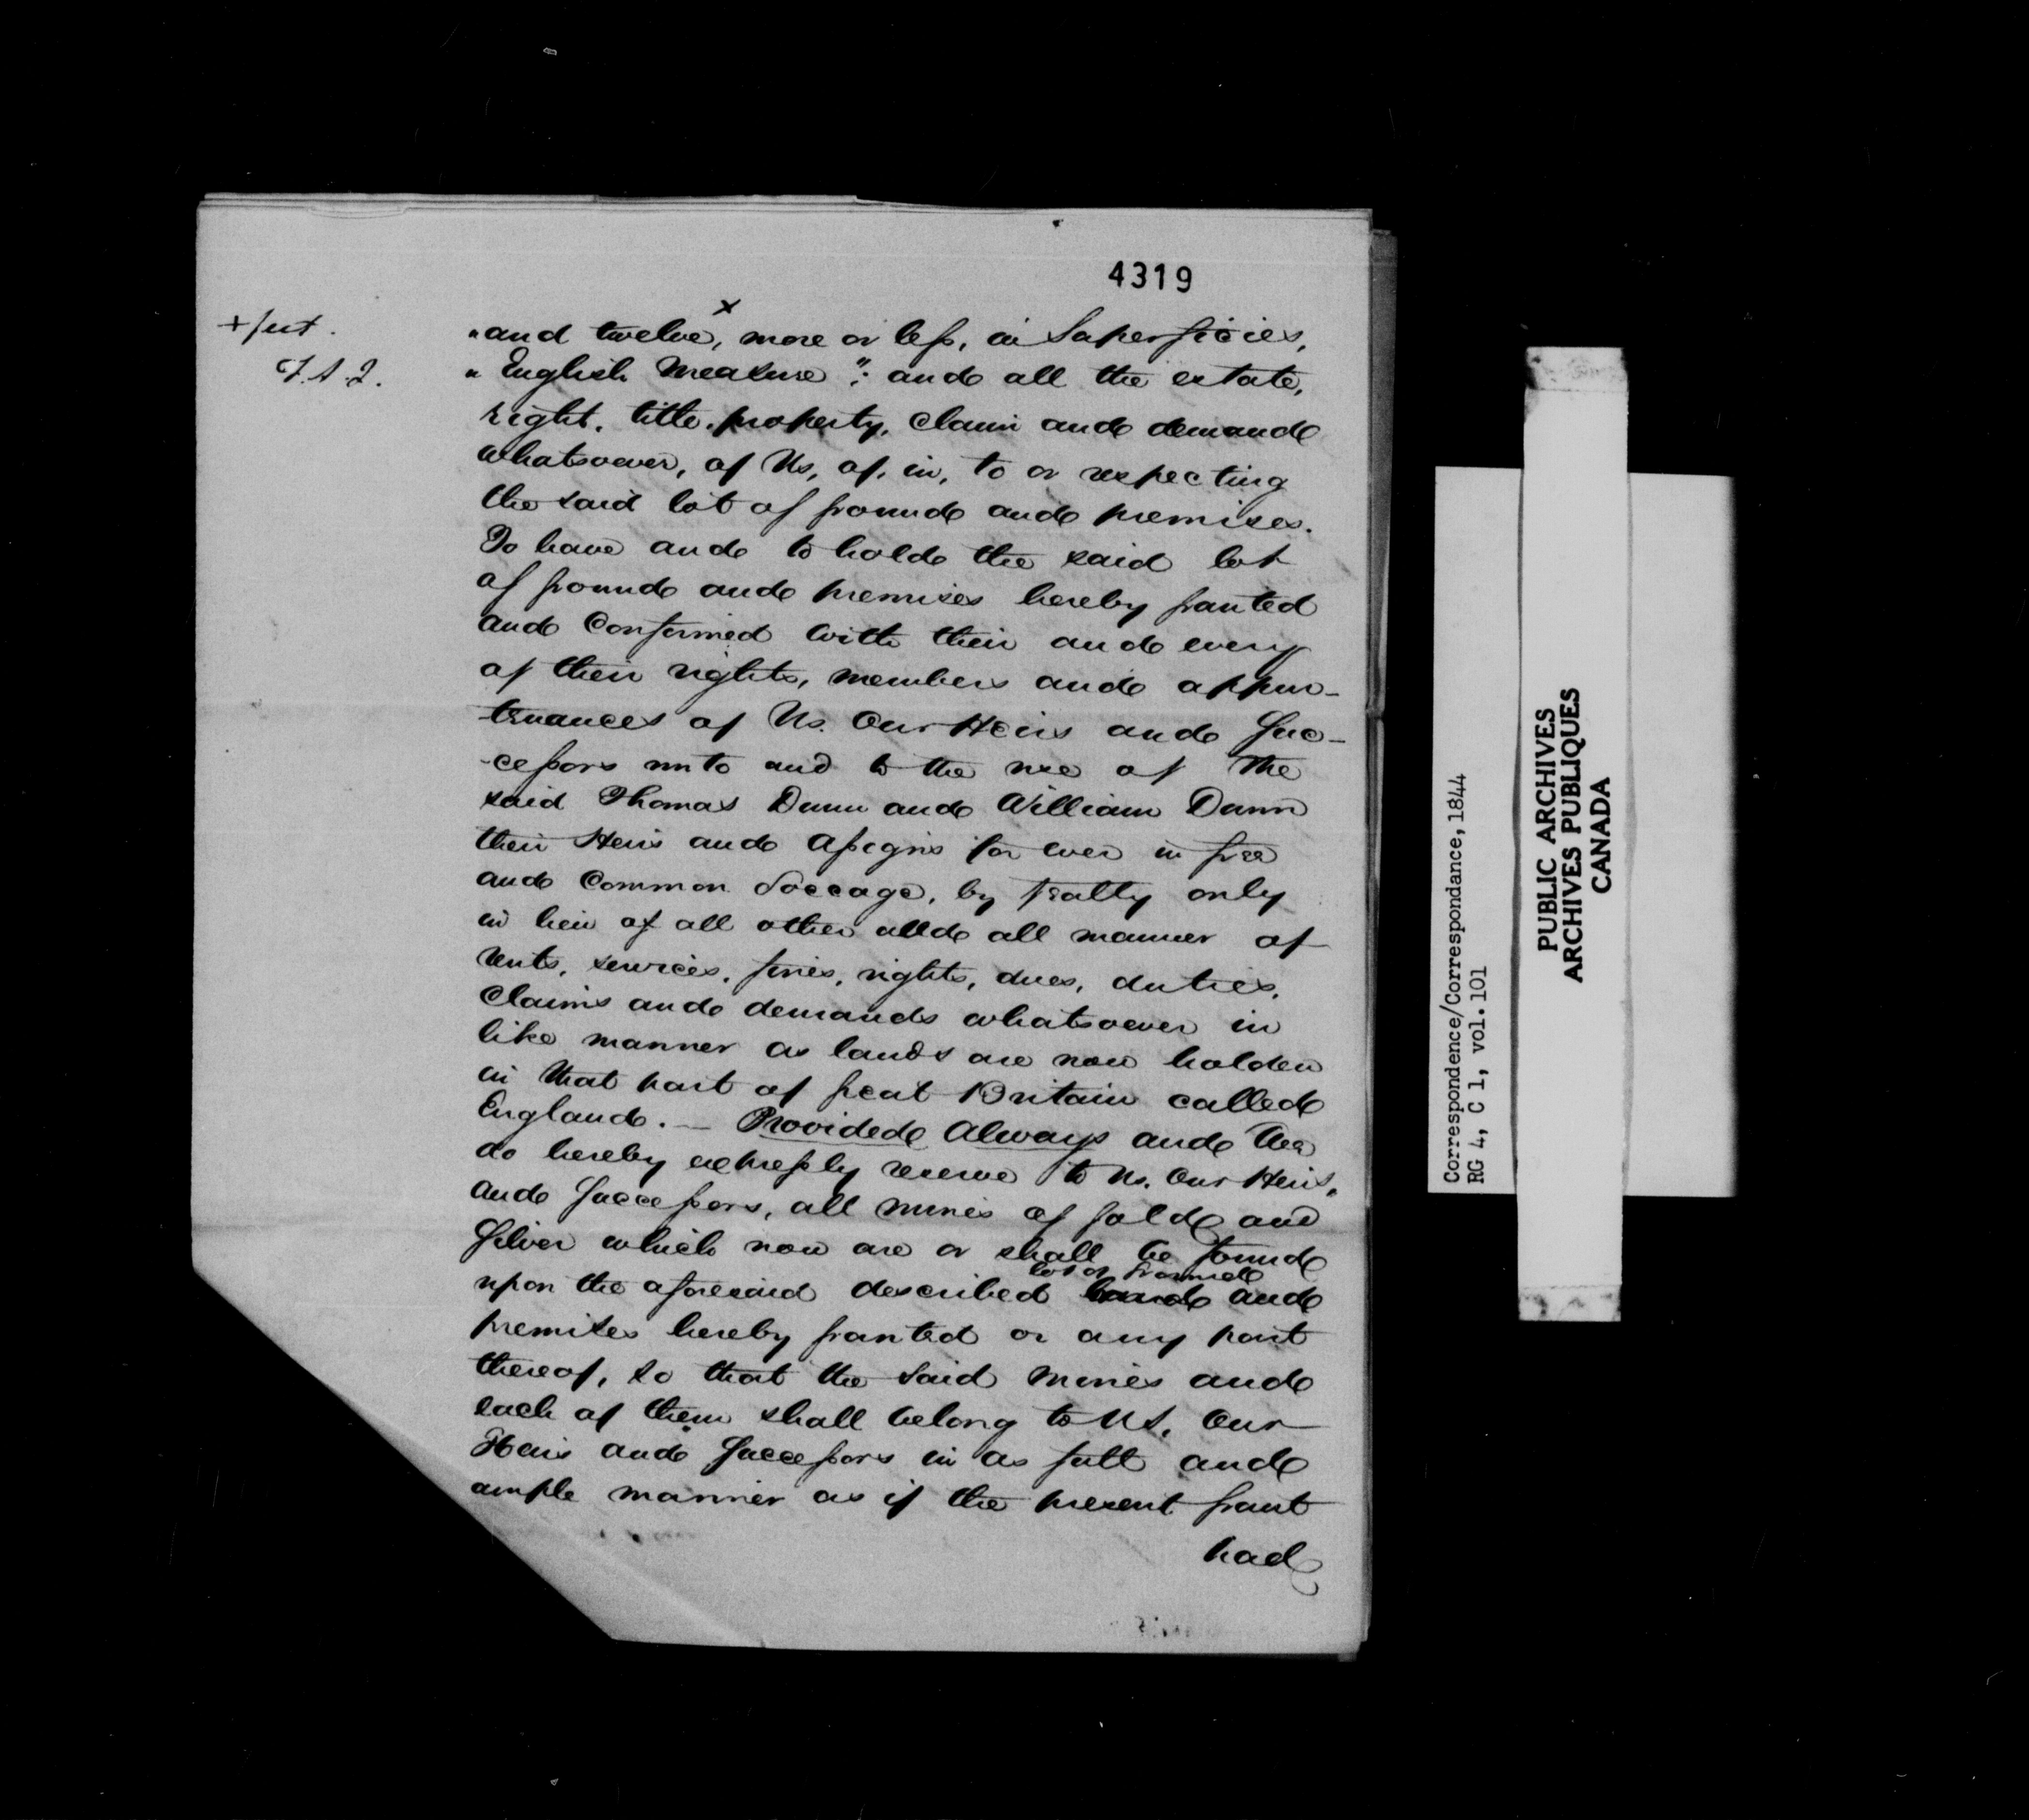 4319
+ feet.
T. A. Y.
"and twelve,x more or less, in Superficies,
" English Measure ": and all the estate,
right, title, property, claim and demand
whatsoever, of Us, of, in, to or respecting
the said lot of ground and premises.
To have and to hold the said lot
of ground and premises hereby granted
and Confirmed with their and every
of their rights, members and appur-
tenances of Us. Our Heirs and Suc-
-cessors unto and to the use of the
said Thomas Dunn and William Dunn
their Heirs and Assigns for ever in free
and Common Soccage, by fealty only
in lieu of all other and all manner of
rents, services, fines, rights, dues, duties,
Claims and demands whatsoever in
like manner as lands are now holden
in that part of Great Britain called
England. — Provided Always and We
do hereby expressly reserve to Us. Our Heirs,
and Successors, all mines of gold and
Silver which now are or shall be found
lot of ground
upon the aforesaid described land and
premises hereby granted or any part
thereof, so that the said mines and
each of them shall belong to Us, Our
Heirs and Successors in as full and
ample manner as if the present grant
had
Correspondence/Correspondance, 1844
RG 4, C 1, vol. 101
PUBLIC ARCHIVES
ARCHIVES PUBLIQUES
CANADA